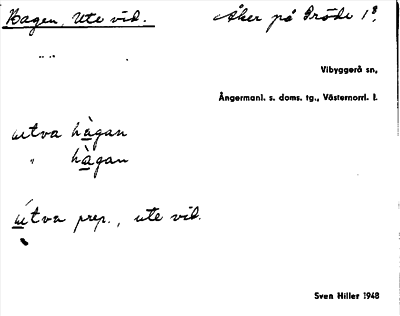 Hagen, Ute vid. Åker på Pröde 1⁸.
Vibyggerå sn,
Ångermanl. s. doms. tg., Västernorrl. l.
utva hågan
" hågan
utva prep., ute vid.
Sven Hiller 1948